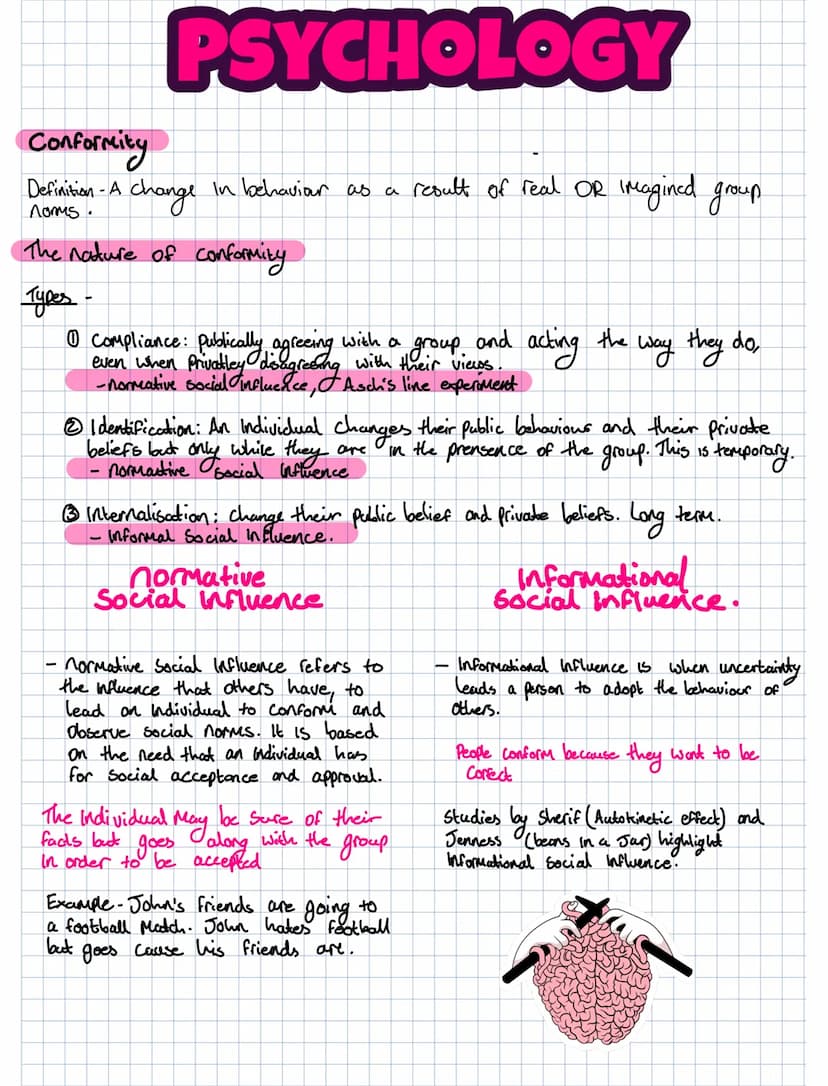 PSYCHOLOGY
Conformity
Definition - A change in behaviour as a result of real OR imagined group
norms.
The nature of conformity
Types -
① Compliance: publically agreeing with a group and acting the way they do,
even when privatley disagreeing with their views.
- normative social influence, Asch's line experiment
② Identification: An individual changes their public behaviours and their private
beliefs but only while they are in the prensence of the group. This is temporary.
- normative social influence
③ Internalisation: change their public belief and private beliefs. Long term.
- informal social influence.
normative
social influence
- normative social influence refers to
the influence that others have, to
lead an individual to conform and
observe social norms. It is based
on the need that an individual has
for social acceptance and approval.
The individual may be sure of their
facts but goes along with the group
in order to be accepted
Example - John's friends are going to
a football match. John hates football
but goes cause his friends are.
Informational
social influence.
- Informational influence is when uncertainty
leads a person to adopt the behaviour of
others.
People conform because they want to be
corect
Studies by Sherif (Autokinetic effect) and
Jenness (beans in a jar) highlight
informational social influence.